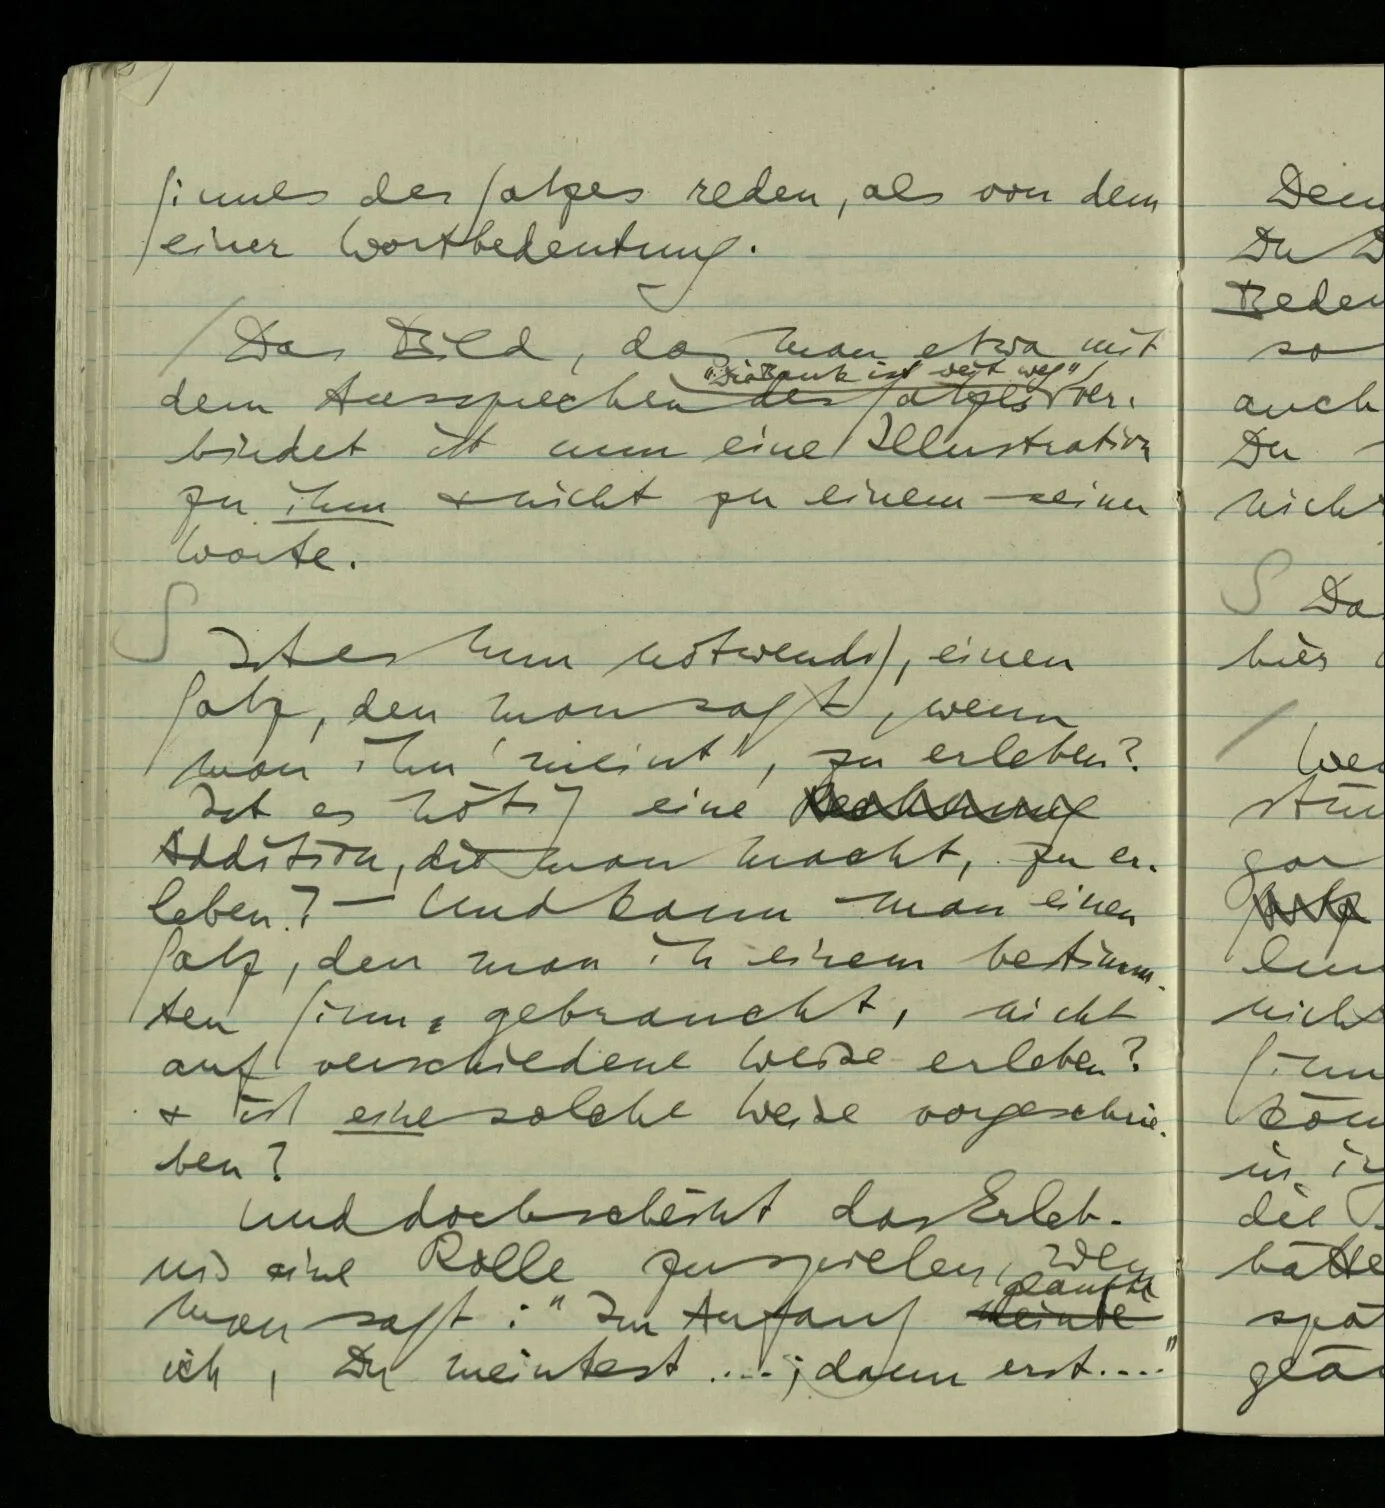 Sinnes des Satzes reden, als von dem
einer Wortbedeutung.
/ Das Bild, das man etwa mit
"Die Bank ist weit weg"
dem Aussprechen des Satzes ver-
bindet ist nun eine Illustration
zu ihm & nicht zu einem seiner
Worte.
S Ist es nun notwendig, einen
Satz, den man sagt, wenn
man ihn 'meint', zu erleben?
Ist es nötig eine Rechnung
Addition, die man macht, zu er-
leben? – Und kann man einen
Satz, den man in einem bestimm-
ten Sinn gebraucht, nicht
auf verschiedene Weise erleben?
& ist eine solche Weise vorgeschrie-
ben?
Und doch scheint das Erleb-
nis eine Rolle zu spielen, wenn
glaubte
man sagt: "Im Anfang meinte
ich, Du meintest ....; dann erst...."
Du
auch
Du
S
hier
/
gar
die
hätte